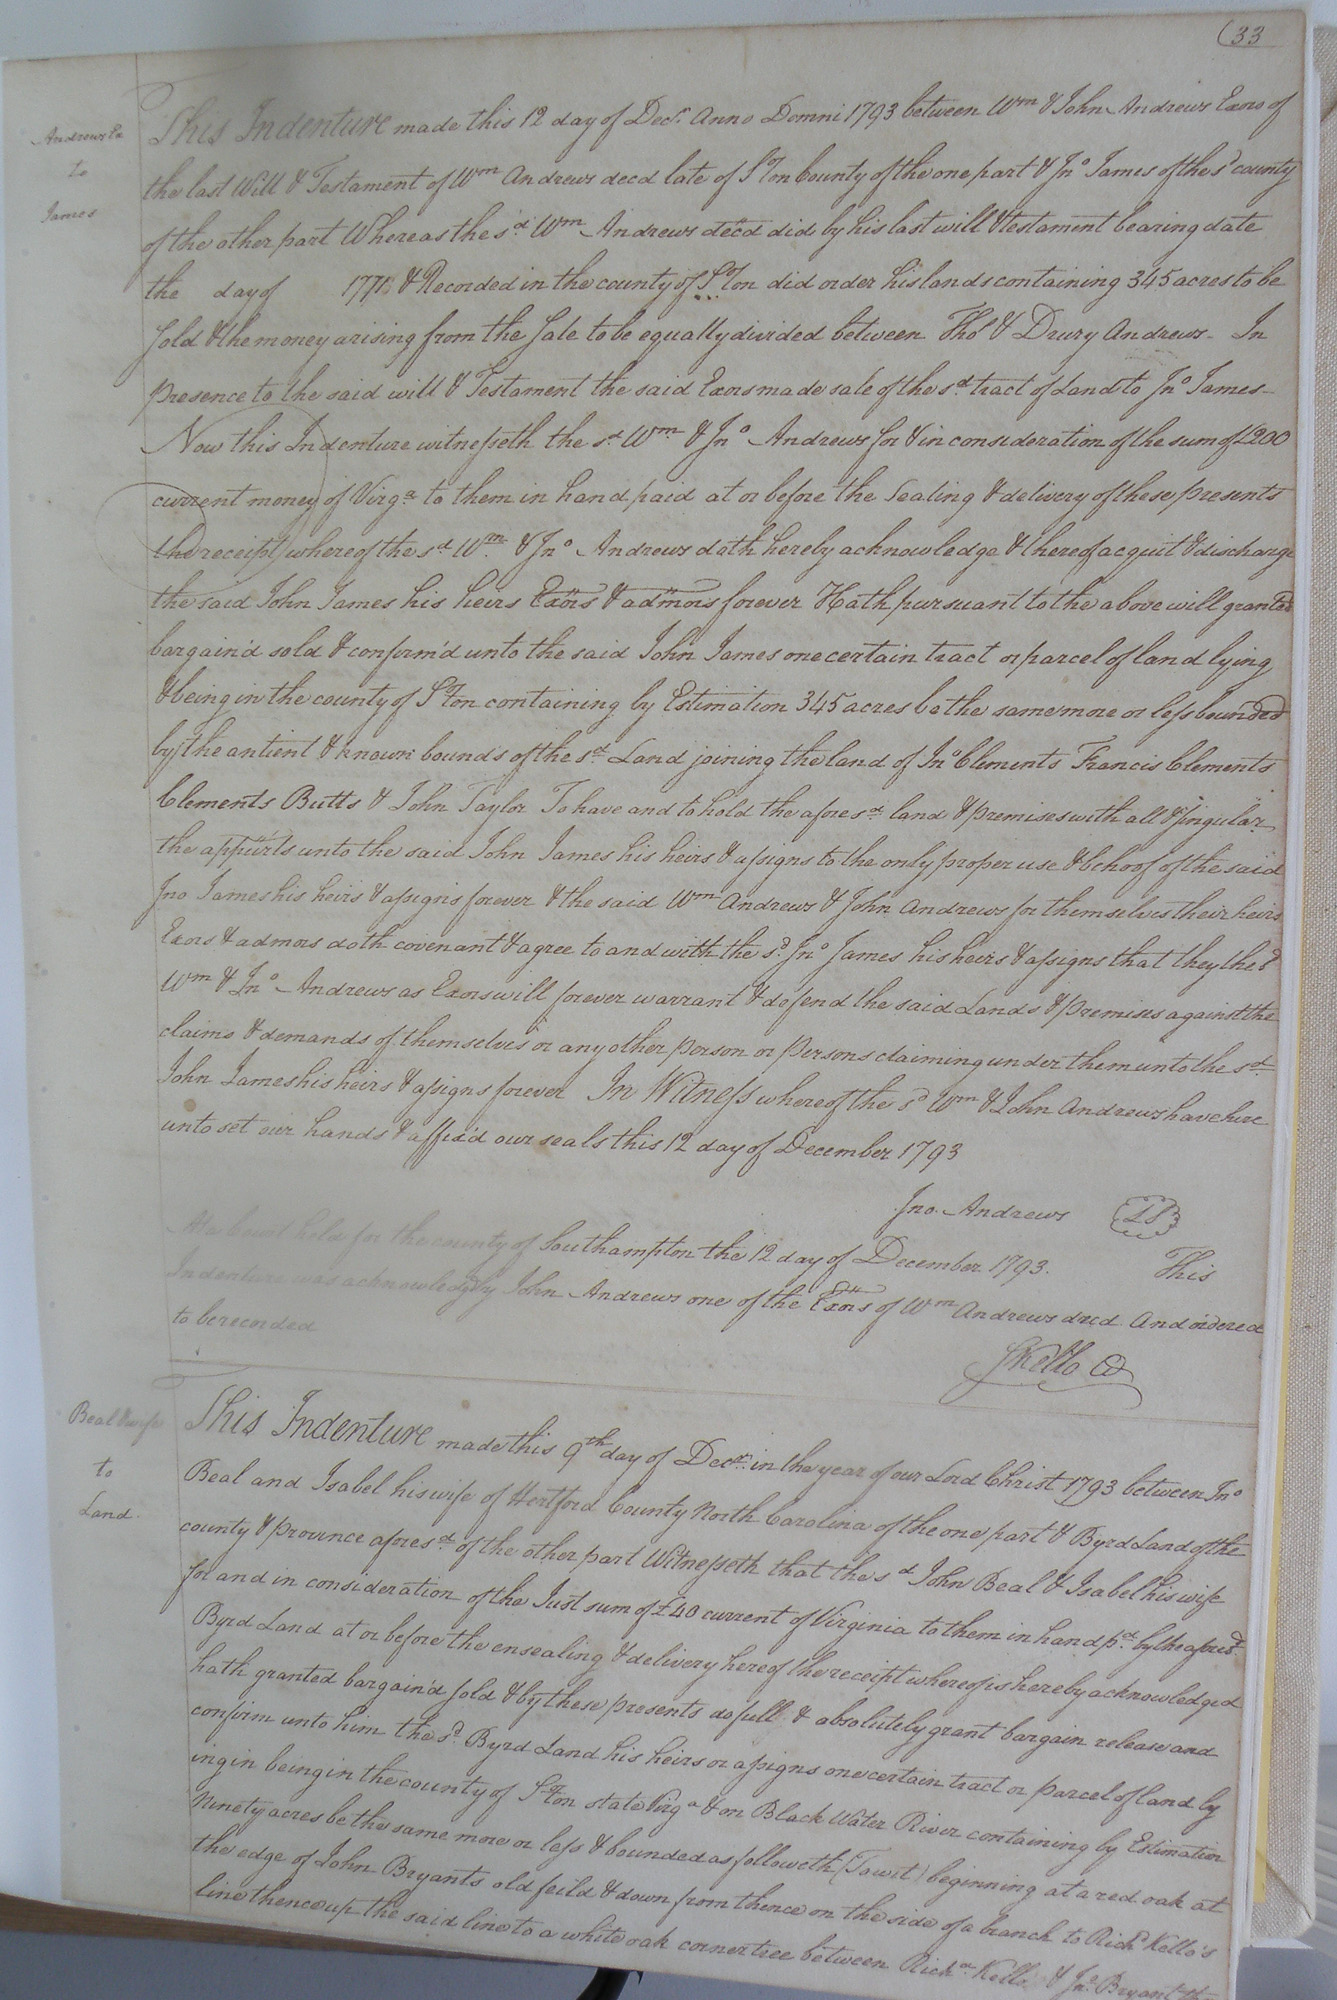 (33
Andrews Ex
to
James
This Indenture made this 12 day of Decr. Anno Domni 1793 between Wm & John Andrews Exors of
the last Will & Testament of Wm Andrews decd late of S.ton County of the one part & Jno James of the sd county
of the other part Whereas the sd Wm Andrews decd did by his last will & testament bearing date
the day of 177 & Recorded in the county of S.ton did order his lands containing 345 acres to be
sold & the money arising from the sale to be equally divided between Thos & Drury Andrews - In
presence to the said will & Testament the said Exors made sale of the sd tract of Land to Jno James -
Now this Indenture witnesseth the sd Wm & Jno Andrews for & in consideration of the sum of £200
current money of Virga to them in hand paid at or before the Sealing & delivery of these presents
the receipt whereof the sd Wm & Jno Andrews doth hereby acknowledge & thereof acquit & discharge
the said John James his heirs Exors & admors forever Hath pursuant to the above will granted
bargain'd sold & confirm'd unto the said John James one certain tract or parcel of land lying
& being in the county of S.ton containing by Estimation 345 acres be the same more or less bounded
by the antient & known bounds of the sd Land joining the land of Jno Clements Francis Clements
Clements Butts & John Taylor To have and to hold the afore sd land & premises with all & singular
the appurts unto the said John James his heirs & assigns to the only proper use & behoof of the said
Jno James his heirs & assigns forever & the said Wm Andrews & John Andrews for themselves their heirs
Exors & admors doth covenant & agree to and with the sd Jno James his heirs & assigns that they the sd
Wm & Jno Andrews as Exors will forever warrant & defend the said Lands & premises against the
claims & demands of themselves or any other person or persons claiming under them unto the sd
John James his heirs & assigns forever In Witness whereof the sd Wm & John Andrews have here
unto set our hands & affix'd our seals this 12 day of December 1793
Jno. Andrews LS
At a Court held for the county of Southampton the 12 day of December 1793. This
Indenture was acknowledg'd by John Andrews one of the Exors of Wm Andrews decd And ordered
to be recorded
SKello CC
Beal & wife
to
Land.
This Indenture made this 9th day of Decr. in the year of our Lord Christ 1793 between Jno
Beal and Isabel his wife of Hertford County North Carolina of the one part & Byrd Land of the
county & province afores.d of the other part Witnesseth that the sd John Beal & Isabel his wife
for and in consideration of the Just sum of £40 current of Virginia to them in hand pd by the aforesd
Byrd Land at or before the ensealing & delivery hereof the receipt whereof is hereby acknowledged
hath granted bargain'd sold & by these presents do full & absolutely grant bargain release and
confirm unto him the sd Byrd Land his heirs or assigns one certain tract or parcel of land ly
ing in being in the county of S.ton state Virga & on Black Water River containing by Estimation
Ninety acres be the same more or less & bounded as followeth (Towit) beginning at a red oak at
the edge of John Bryants old feild & down from thence on the side of a branch to Richd Kello's
line thence up the said line to a white oak corner tree between Richd Kello & Jno Bryant